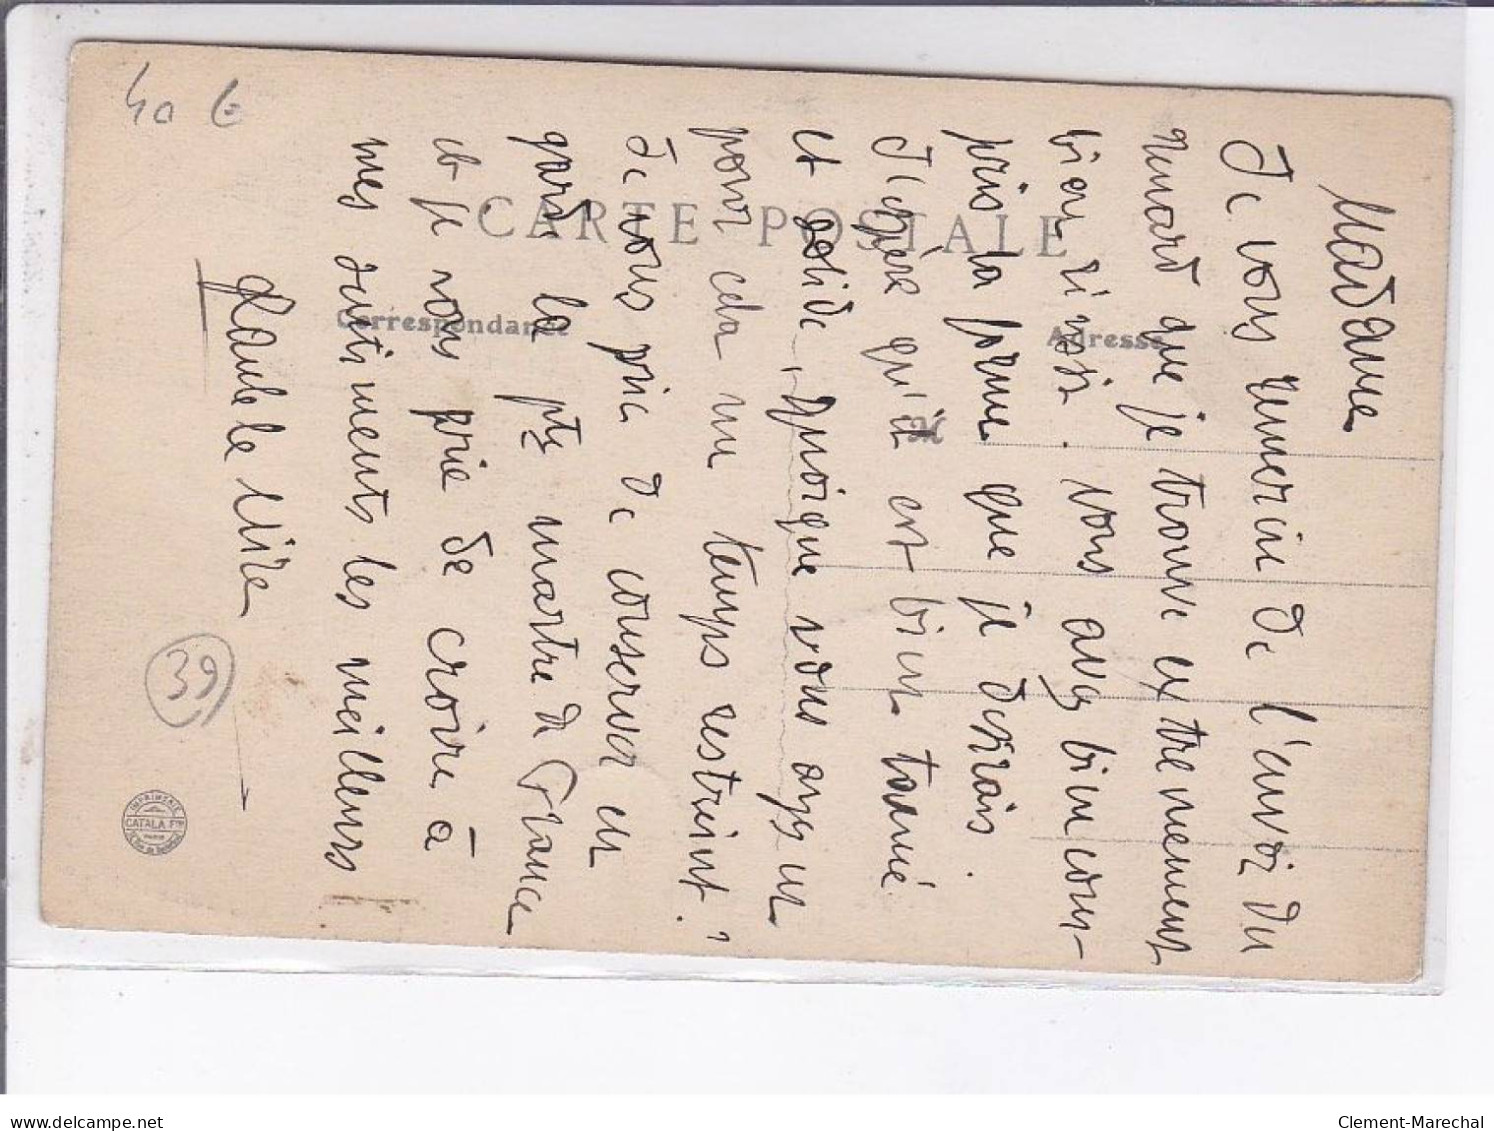 40 €
CARTE POSTALE
Correspondance
Adresse
M
Madame
Je vous remercie de l'envoi du
renard que je trouve extremement
bien réussi. Vous avez bien com-
pris la forme que je désirais.
J'espère qu'il est bien tanné
et solide, quoique vous ayez eu
pour cela un temps restreint.
Je vous prie de conserver en
garde la pte martre de France
et je vous prie de croire à
mes sentiments les meilleurs
39
IMPRIMERIE
CATALA Frs
PARIS
Clement-Marechal
www.delcampe.net